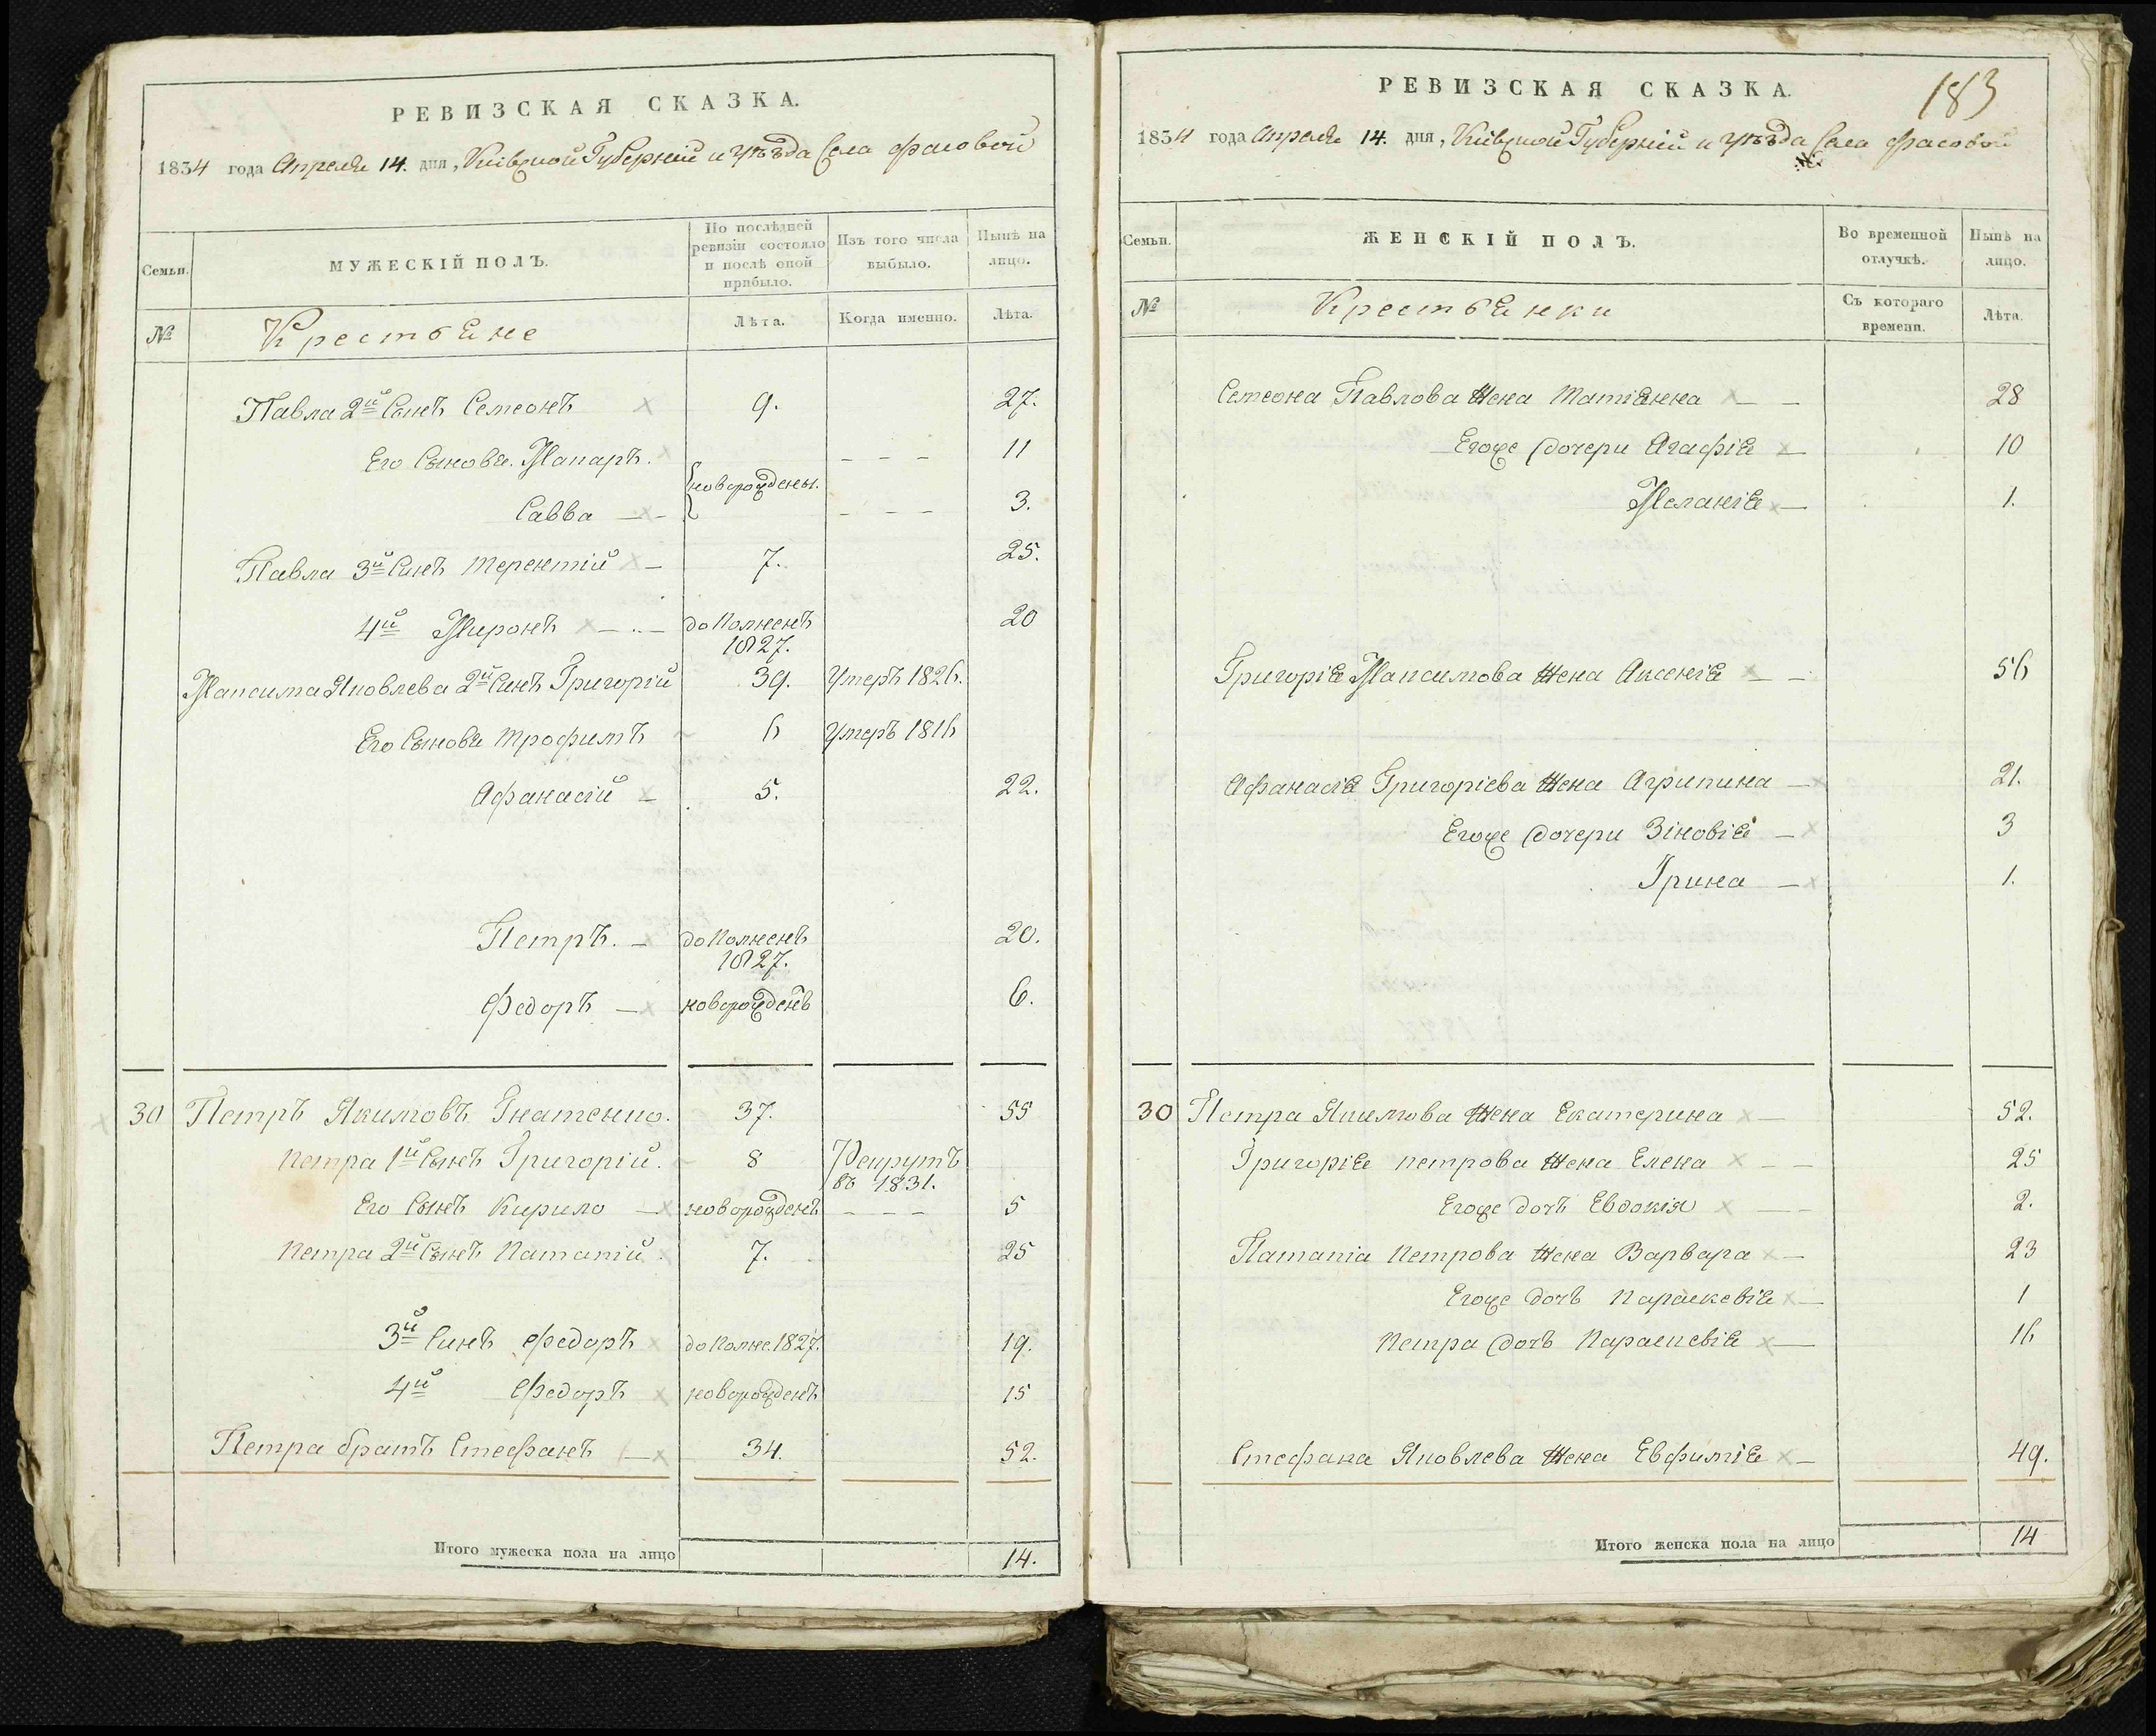 РЕВИЗСКАЯ СКАЗКА.
1834 года Апреля 14. дня, Кіевской Губерніи и уѣзда Села Фасовой
Семьи.
МУЖЕСКІЙ ПОЛЪ.
По послѣдней ревизіи состояло и послѣ оной прибыло.
Изъ того числа выбыло.
Нынѣ на лицо.
№
Крестьяне
Лѣта.
Когда именно.
Лѣта.
Павла 2й Сынъ Семеонъ 9. 27.
Его Сыновя. Макаръ. новорождены. - - - 11
Савва - - - 3.
Павла 3й Синъ Терентій 7. 25.
4й Миронъ дополненъ 1827. 20
Максима Яковлева 2й Синъ Григорій 39. Умеръ 1826.
Его Сыновя Трофимъ 6 Умеръ 1816
Афанасій 5. 22.
Петръ. дополненъ 1827. 20.
Федоръ новорожденъ 6.
30 Петръ Якимовъ Гнатенко. 37. 55
Петра 1й Сынъ Григорій. 8 Рекрутъ въ 1831.
Его Сынъ Кирило новорожденъ - - - 5
Петра 2й Сынъ Патапій. 7. 25
3й Синъ Федоръ дополне. 1827. 19.
4й Федоръ новорожденъ 15
Петра братъ Стефанъ 34. 52.
Итого мужеска пола на лицо 14.
183
РЕВИЗСКАЯ СКАЗКА.
1834 года Апреля 14. дня, Кіевской Губерніи и уѣзда Села Фасовой
Семьи.
ЖЕНСКІЙ ПОЛЪ.
Во временной отлучкѣ.
Нынѣ на лицо.
№
Крестьянки
Съ котораго времени.
Лѣта.
Семеона Павлова жена Матіянна 28
Егоже дочери Агафія 10
Меланія 1.
Григорія Максимова жена Аксенія 56
Афанасія Григоріева жена Агрипина 21.
Егоже дочери Зіновія 3
Ірина 1.
30 Петра Якимова жена Екатерина 52.
Григорія петрова жена Елена 25
Егоже дочъ Евдокія 2.
Патапіа Петрова жена Варвара 23
Егоже дочъ Параскевія 1
Петра дочъ Параскевія 16
Стефана Яковлева жена Евфимія 49.
Итого женска пола на лицо 14